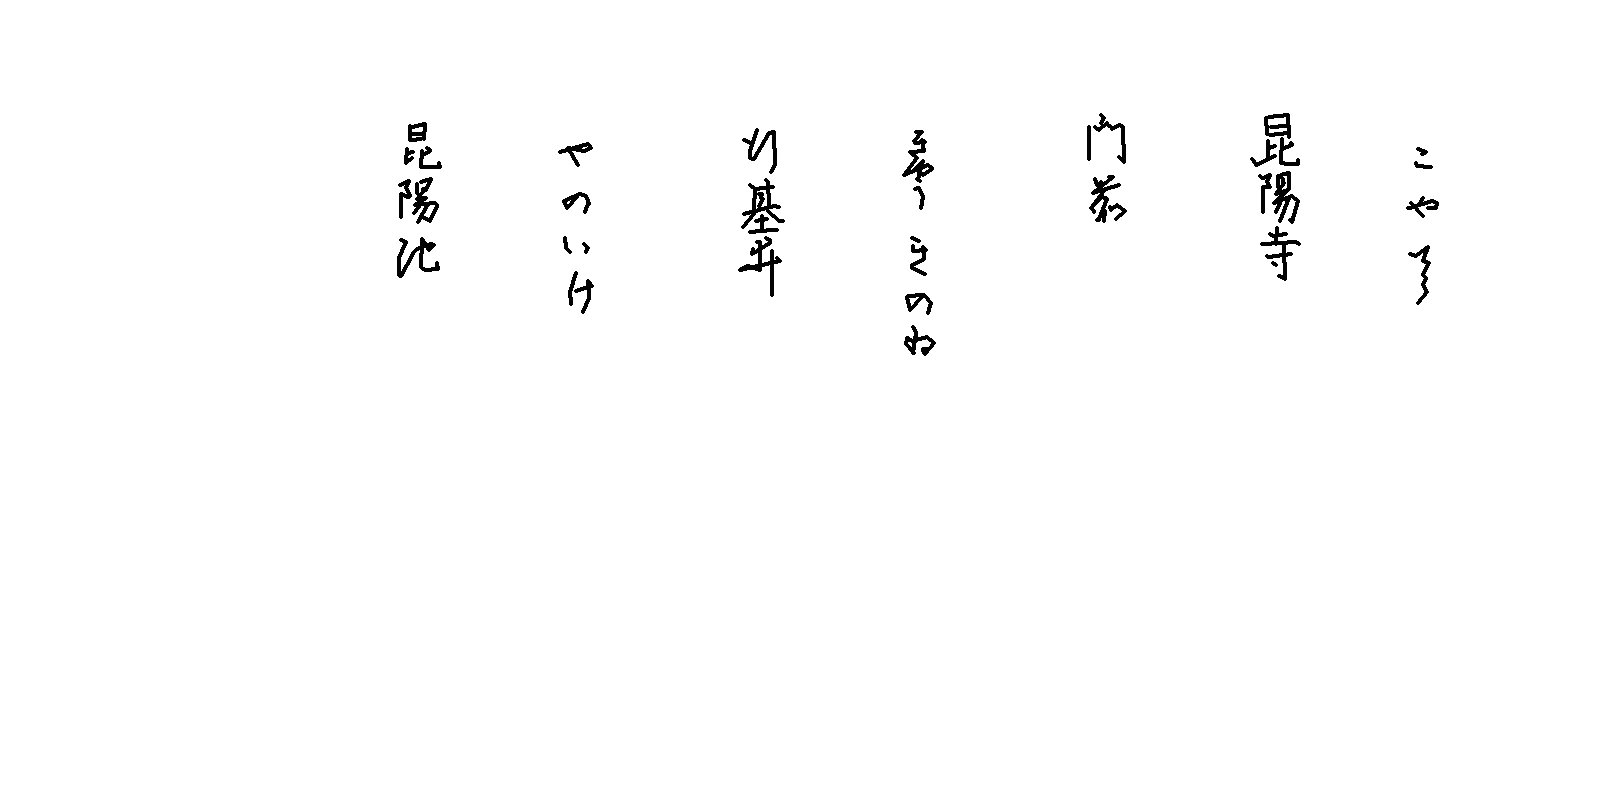 こやでら
昆陽寺
門前
ぎやうきのゐ
行基井
やのいけ
昆陽池